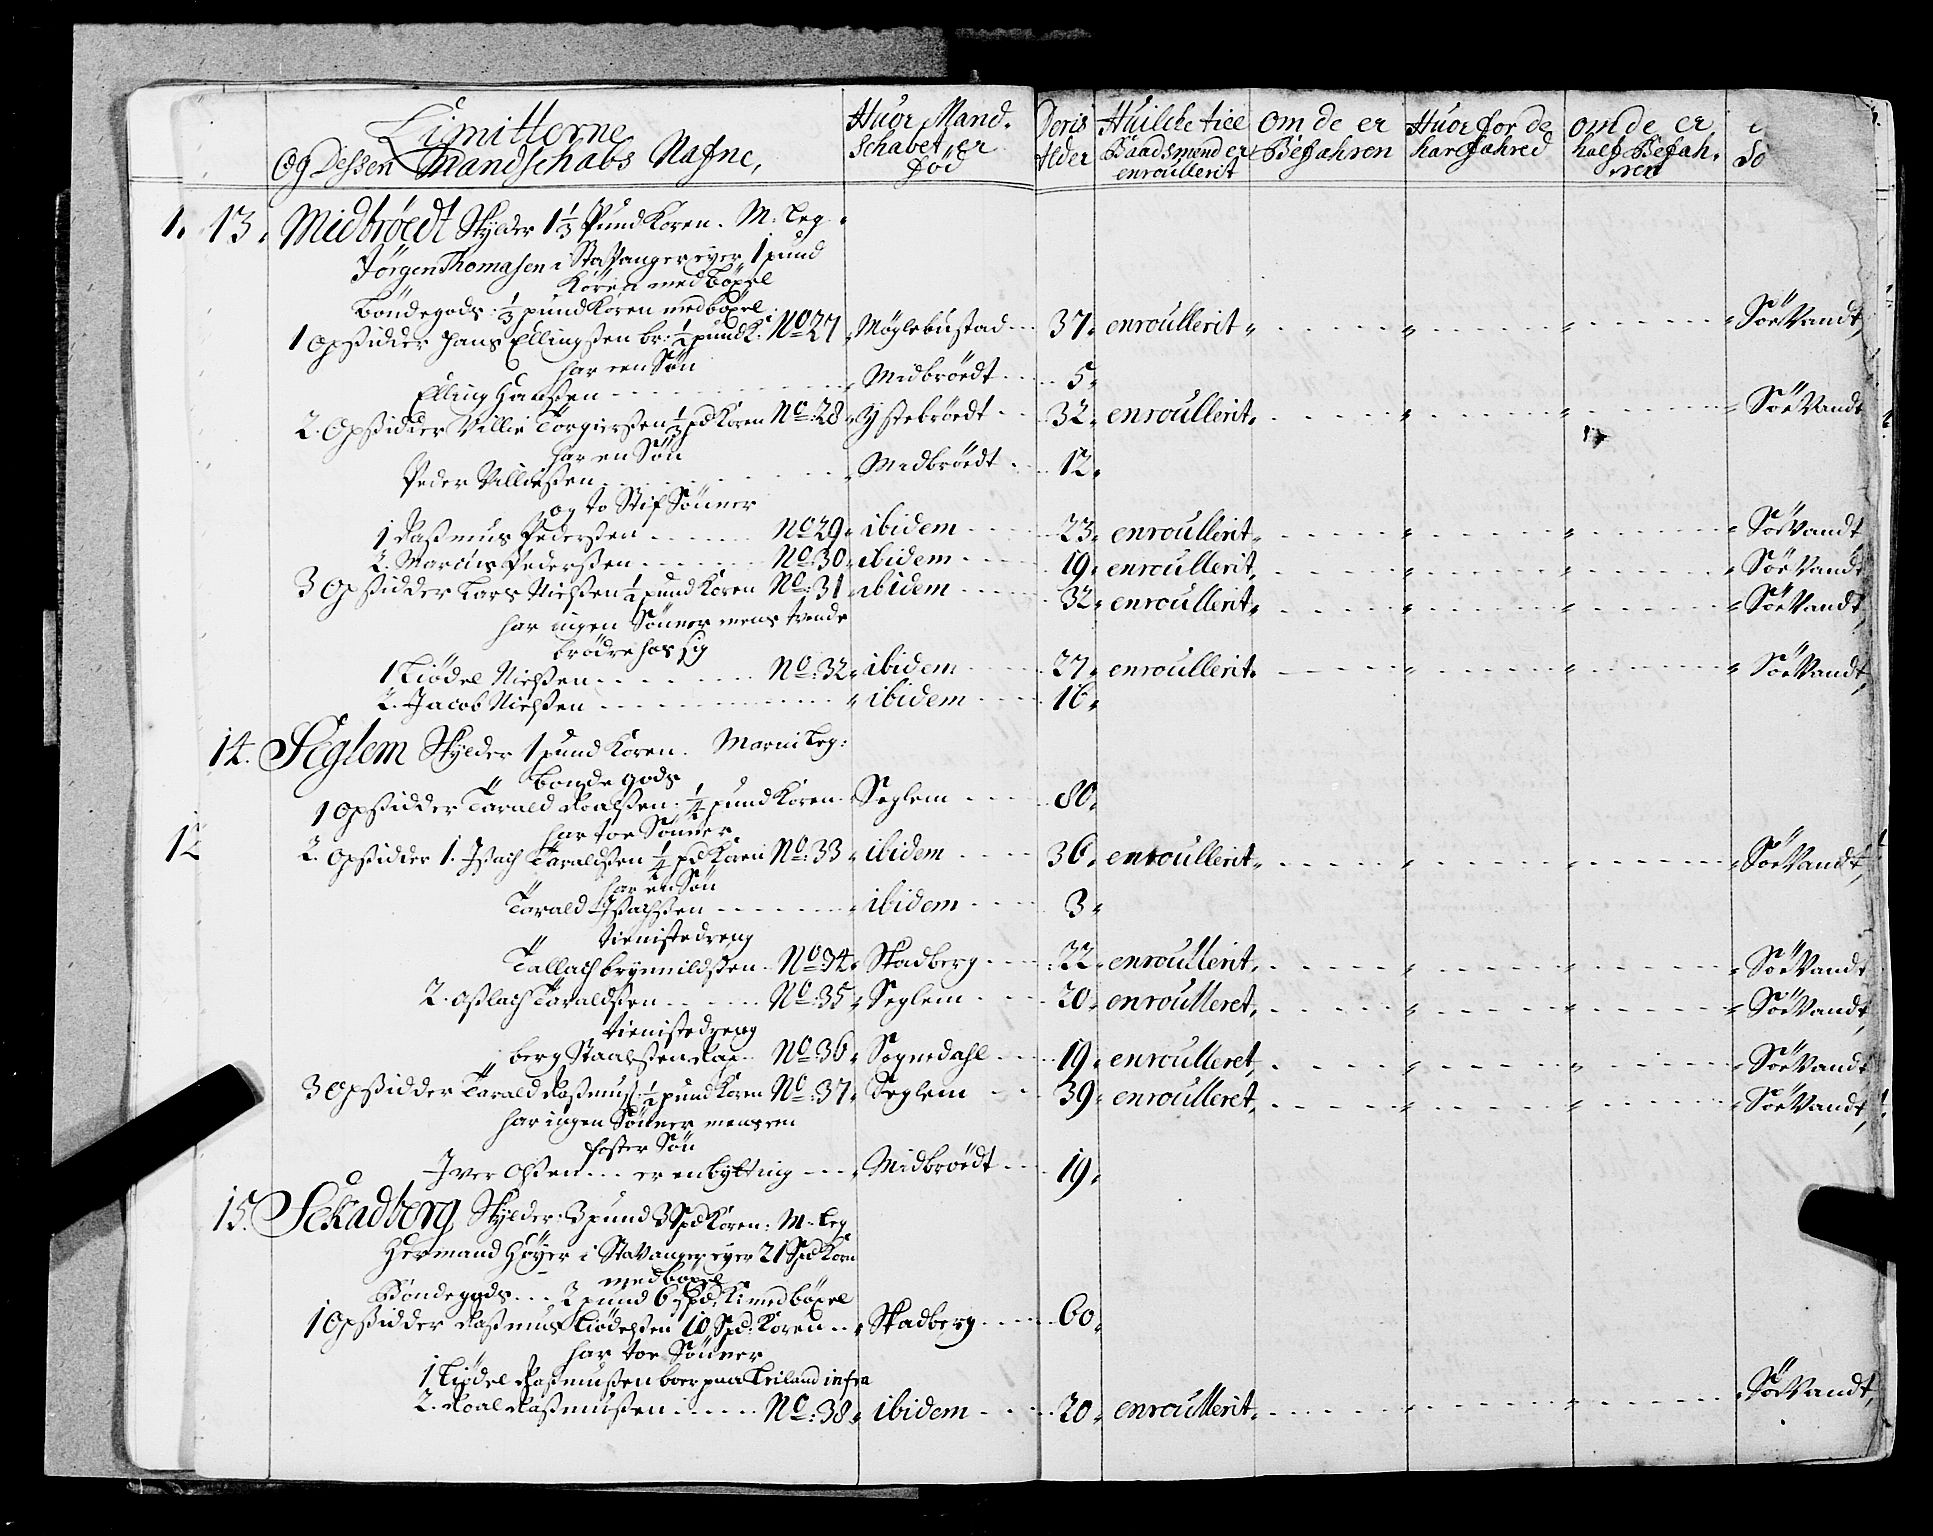 Limitterne
Og Dessen Mandschabs Nafne,
Huor Mand-
schabet er
Fød
Deris
Alder
Huilche till
Baadsmend er
enroullerit
Om de er
Befahren
Huor for de
har fahred
om de er
half Befah-
ren
Sö
1. 13. Midbrödt Skylder 1 1/3 Pund Koren. M: Leg.
Jörgen Thomasen i Stavanger eyer 1 pund
Koren med Böxel
Böndegods: 1/3 pund Koren med böxel
1 Opsidder Hans Ellingsen br: 1/2 pund K: No 27 Möglebustad 37 enroullerit Söe Vandt
har een Sön
Elling Hansen Midbröedt 5
2. Opsidder Villie Torgiersen 1/3 pd Koren No: 28 Ystebröedt 32 enroullerit Söe Vandt
har en Sön
Peder Villiesen Midbröedt 12
og to Stif Sönner
1 Rasmus Pedersen No 29 ibidem 23 enroullerit Söe Vandt
2. Marcus Pedersen No: 30 ibidem 19 enroullerit Söe Vandt
3 Opsidder Lars Nielsen 1/2 pund Koren No: 31 ibidem 32 enroullerit Söe Vandt
har ingen Sönner mens tvende
brödre hos sig
1 Tiödel Nielsen No: 32 ibidem 27 enroullerit Söe Vandt
2. Jacob Nielsen ibidem 16
14. Seglem Skylder 1 pund Koren. Marni Leg:
Bonde gods
1 Opsidder Tarald Roalsen 1/4 pund Koren Seglem 80
har toe Sönner
12
2. Opsidder 1. Isach Taraldsen 1/4 pd Koren No: 33 ibidem 36 enroullerit Söe Vandt
har en Sön
Tarald Isachsen ibidem 3
tienistedreng
Tallach brynnildsen No: 34 Skadberg 22 enroullerit Söe Vandt
2. Oslach Taraldsen No: 35 Seglem 20 enroulleret Söe Vandt
tienistedreng
berg Staalsen Rae No: 36 Sognedahl 19 enroulleret Söe Vandt
3 Opsidder Tarald Rasmus: 1/2 pund Koren No: 37 Seglem 39 enroulleret Söe Vandt
har ingen Sönner mens en
foster Sön
Iver Olsen er en bytting Midbröedt 19
15. Sckadberg Skylder: 3 pund 3 Spd Koren: M: Leg
Hermand Höyer i Stavanger eyer 21 Spd Korn
med böxel
Böndegods 2 pund 6 Spd. K: med böxel
1 Opsidder Rasmus Tiödelsen 10 Spd: Koren Skadberg 60
har toe Sönner
1 Tiödel Rasmusen boer paa Leiland infra
2. Roal Rasmusen No: 38 ibidem 20 enroullerit Söe Vandt